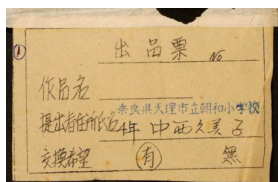 ①
出品票 No
作品名
奈良県天理市立朝和小学校
提出者住所氏名 4年 中西久美子
交換希望 有 無